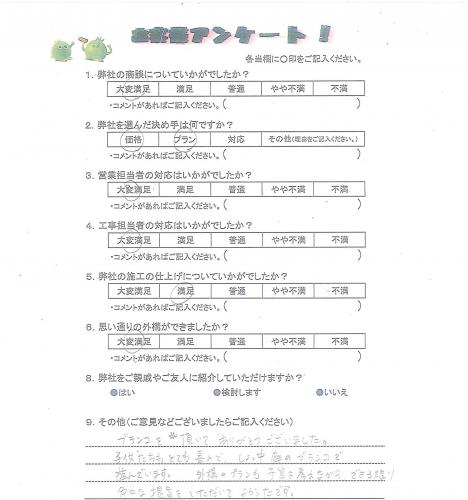 お客様アンケート！
各当欄に〇印をご記入ください。
1. 弊社の商談についていかがでしたか？
大変満足 満足 普通 やや不満 不満
・コメントがあればご記入ください。(
2. 弊社を選んだ決め手は何ですか？
価格 プラン 対応 その他(理由をご記入ください。)
・コメントがあればご記入ください。(
3. 営業担当者の対応はいかがでしたか？
大変満足 満足 普通 やや不満 不満
・コメントがあればご記入ください。(
4. 工事担当者の対応はいかがでしたか？
大変満足 満足 普通 やや不満 不満
・コメントがあればご記入ください。(
5. 弊社の施工の仕上げについていかがでしたか？
大変満足 満足 普通 やや不満 不満
・コメントがあればご記入ください。(
6. 思い通りの外構ができましたか？
大変満足 満足 普通 やや不満 不満
・コメントがあればご記入ください。(
8. 弊社をご親戚やご友人に紹介していただけますか？
はい 検討します いいえ
9. その他(ご意見などございましたらご記入ください)
ブランコを 頂いて ありがとうございました。
子供たちも とても 喜んで、 中庭のブランコで
遊んでいます。 外構のプランも 予算を考えながら でき
提案を いただいて よかったです。